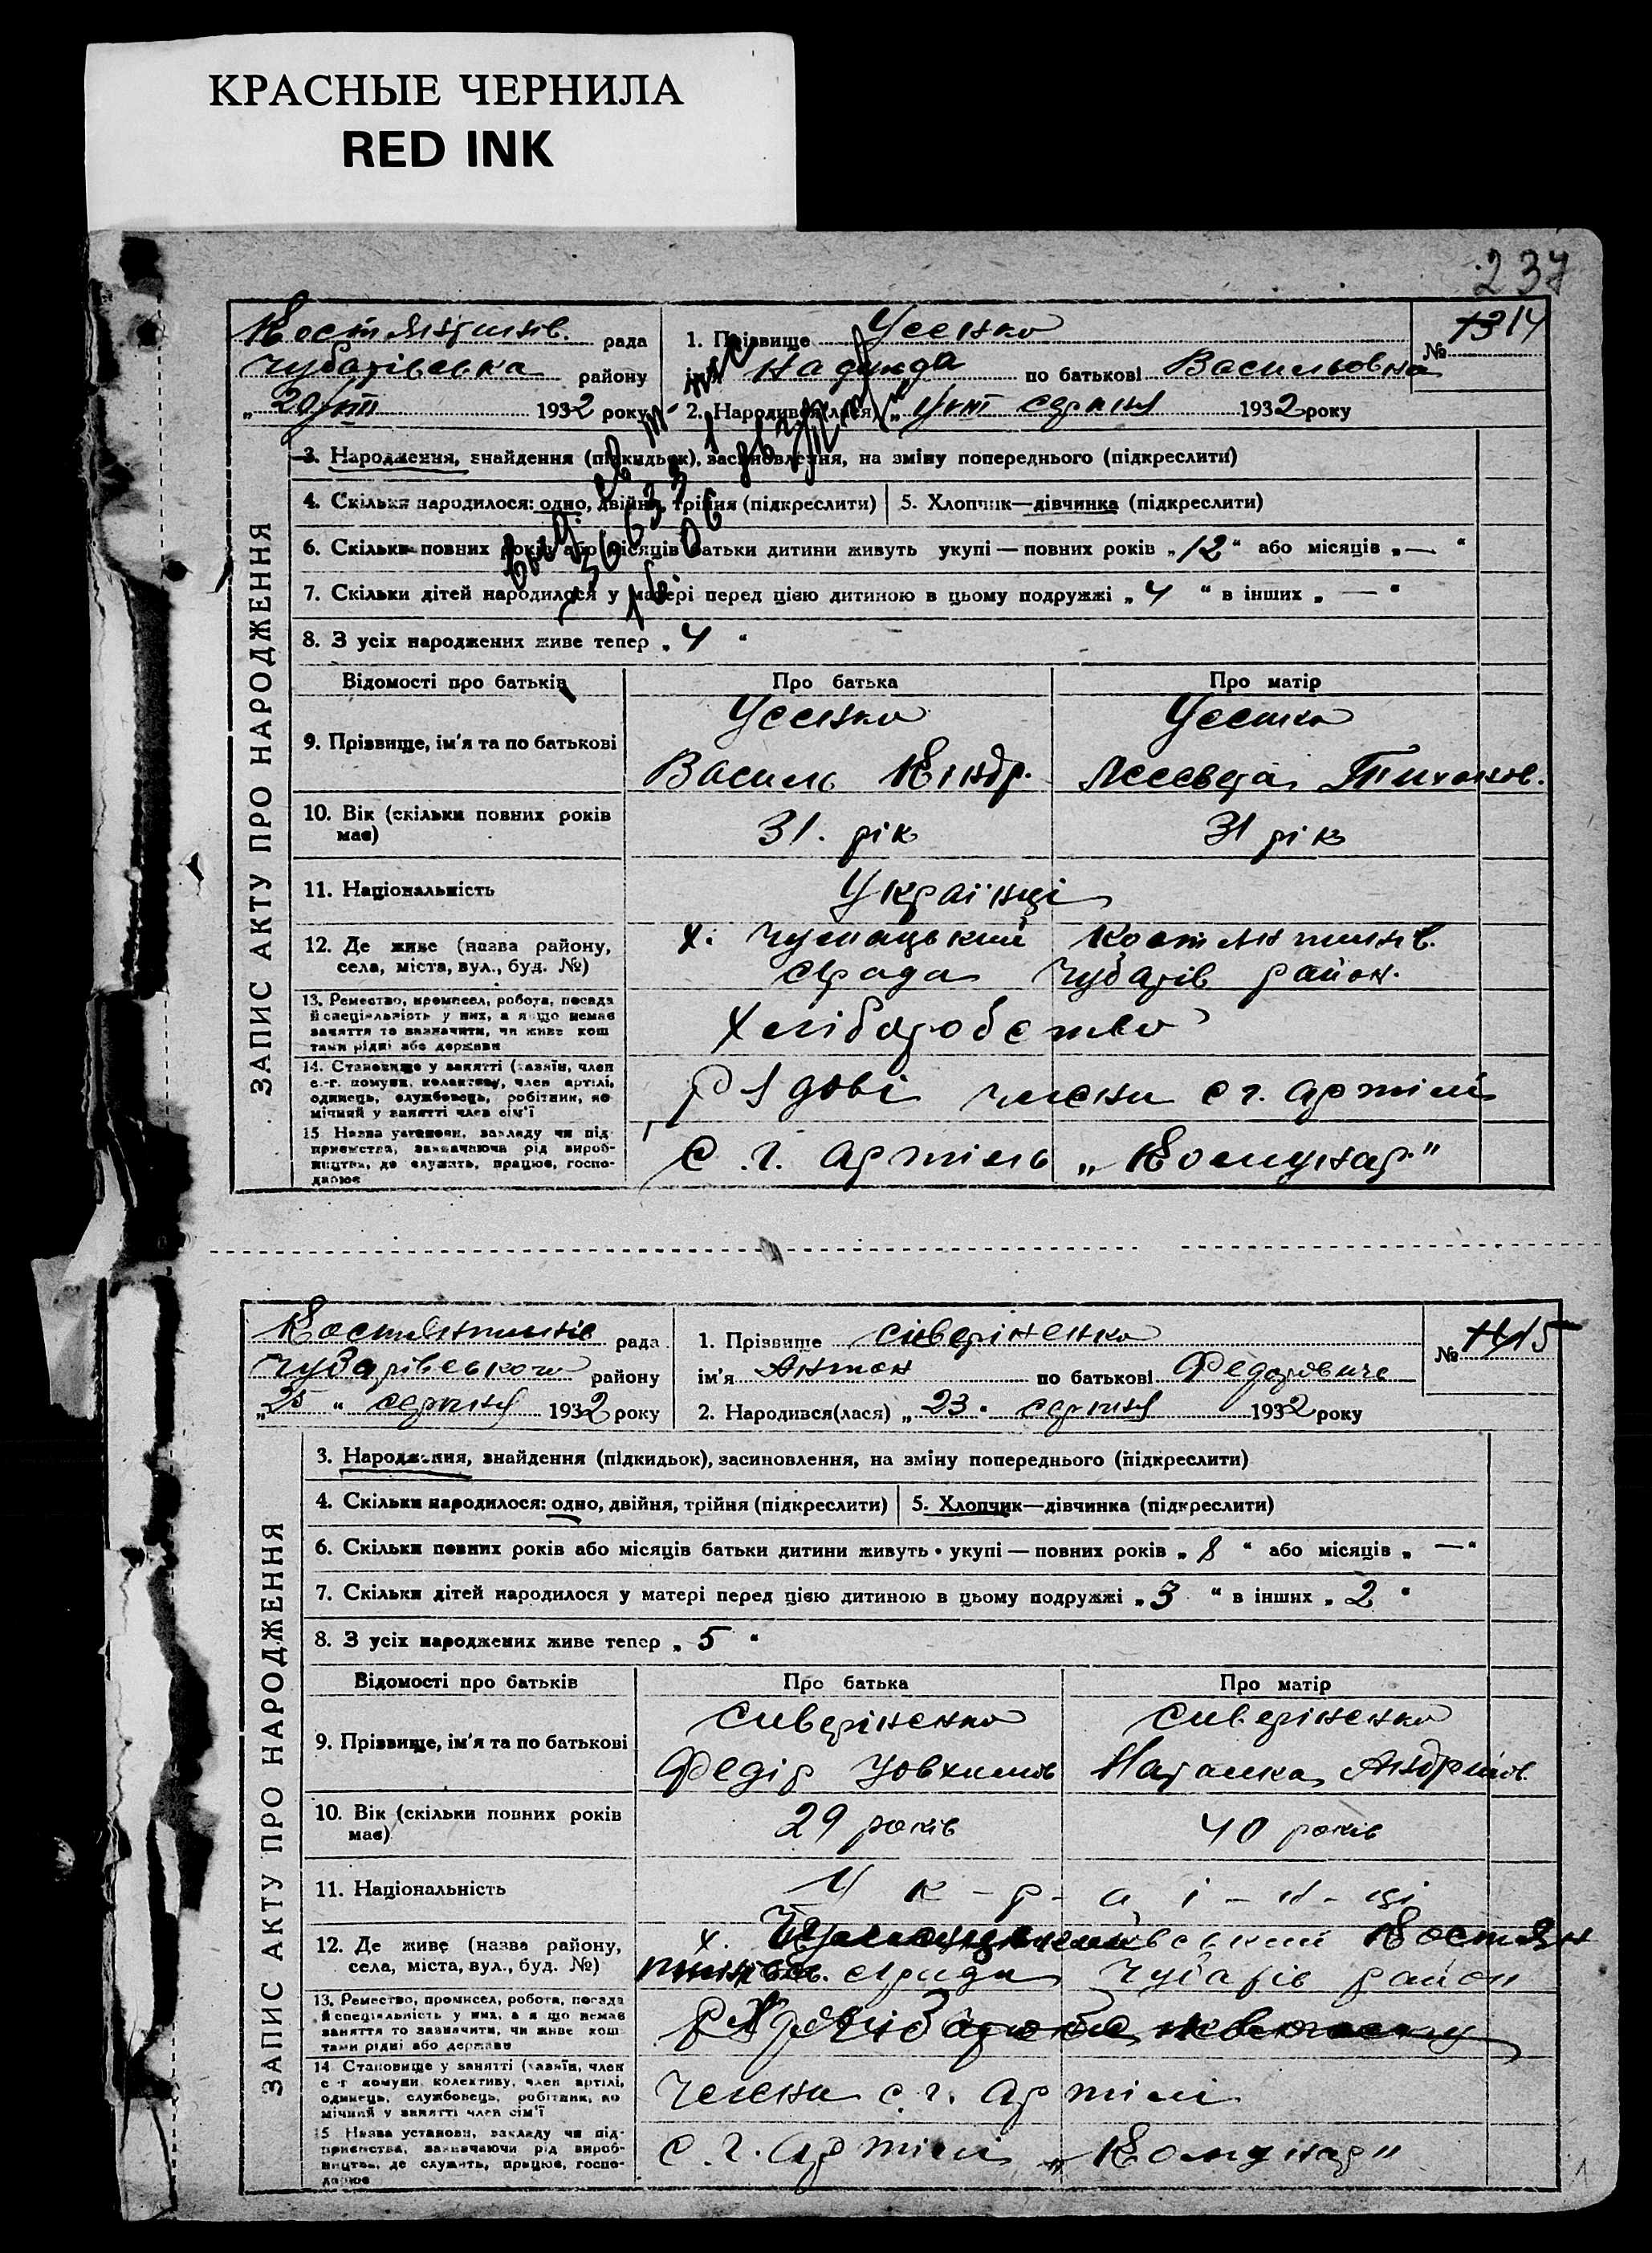 КРАСНЫЕ ЧЕРНИЛА
RED INK
237
ЗАПИС АКТУ ПРО НАРОДЖЕННЯ
Костянтинів. рада
Чубарівська району
" 20/VIII 1932 року
1. Прізвище Усенко
ім'я Надежда по батькові Васильовна
2. Народився(лася) серпня 1932 року
№ 13 14
3. Народження, знайдення (підкидьок), засиновлення, на зміну попереднього (підкреслити)
4. Скільки народилося: одно, двійня, трійня (підкреслити) 5. Хлопчик—дівчинка (підкреслити)
6. Скільки повних років або місяців батьки дитини живуть укупі — повних років „12" або місяців „—"
7. Скільки дітей народилося у матері перед цією дитиною в цьому подружжі „4" в інших „—"
8. З усіх народжених живе тепер „4"
Відомості про батьків Про батька Про матір
9. Прізвище, ім'я та по батькові
Усенко Усенко
Василь Кіндр. Тихонов.
10. Вік (скільки повних років має) 31. рік 31 рік
11. Національність Українці
12. Де живе (назва району, села, міста, вул., буд. №)
х. Чумацький Костянтинів.
с/рада Чубарів район.
13. Ремество, промисел, робота, посада й спеціяльність у них, а якщо немає заняття то зазначити, чи живе коштами рідні або держави
Хліборобство
14. Становище у занятті (хазяїн, член с.-г. комуни, колективу, член артілі, одинець, службовець, робітник, помічний у занятті член сім'ї
Рядові члени с г. артілі
15. Назва установи, закладу чи підприємства, зазначаючи рід виробництва, де служить, працює, господарює
с. г. артіль „Комунар"
ЗАПИС АКТУ ПРО НАРОДЖЕННЯ
Костянтинів рада
Чубарівського району
„25" серпня 1932 року
1. Прізвище Сіверіненко
ім'я Антон по батькові Федорович
2. Народився(лася) „23" серпня 1932 року
№ 14 15
3. Народження, знайдення (підкидьок), засиновлення, на зміну попереднього (підкреслити)
4. Скільки народилося: одно, двійня, трійня (підкреслити) 5. Хлопчик—дівчинка (підкреслити)
6. Скільки повних років або місяців батьки дитини живуть укупі — повних років „8" або місяців „—"
7. Скільки дітей народилося у матері перед цією дитиною в цьому подружжі „3" в інших „2"
8. З усіх народжених живе тепер „5"
Відомості про батьків Про батька Про матір
9. Прізвище, ім'я та по батькові
Сиверіненко Сиверіненко
Федір Йовхимов Наталка Андріїов.
10. Вік (скільки повних років має) 29 років 40 років
11. Національність У к - р - а ї - н - ці
12. Де живе (назва району, села, міста, вул., буд. №)
х. Костян
тинів. с/рада Чубарів район
13. Ремество, промисел, робота, посада й спеціяльність у них, а якщо немає заняття то зазначити, чи живе коштами рідні або держави
14. Становище у занятті (хазяїн, член с.-г. комуни, колективу, член артілі, одинець, службовець, робітник, помічний у занятті член сім'ї
Члени с. г. артілі
15. Назва установи, закладу чи підприємства, зазначаючи рід виробництва, де служить, працює, господарює
с. г. артілі „Комунар"